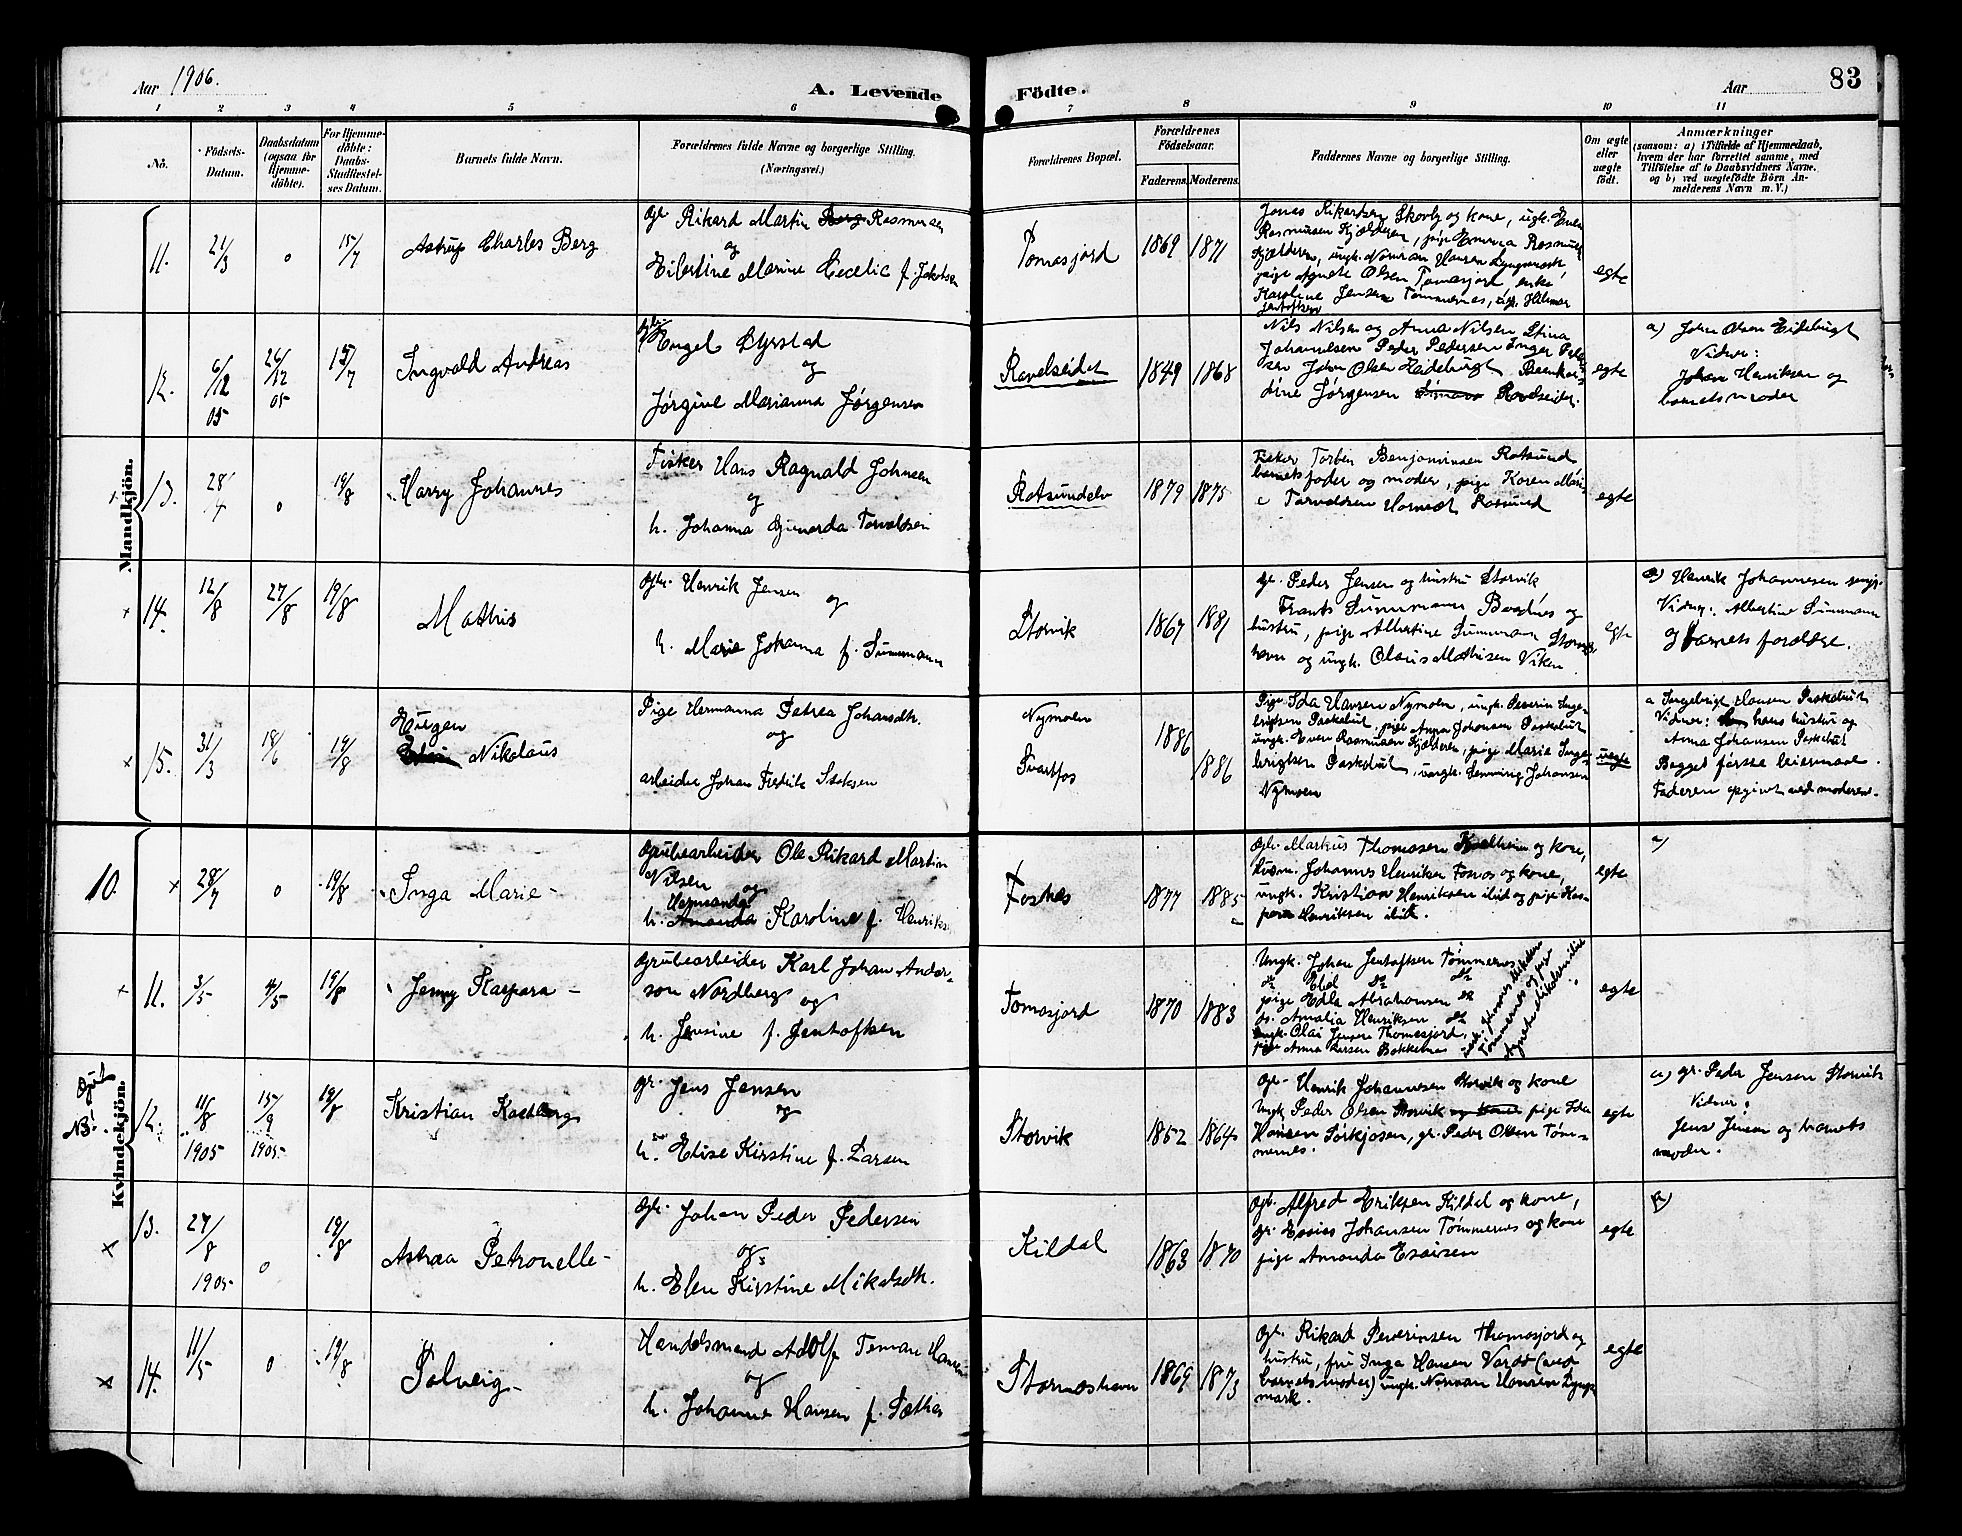 Aar 1906.
A. Levende
Födte.
Aar
83
1 2 3 4 5 6 7 8 9 10 11
No.
Födsels-
Datum.
Daabsdatum
(ogsaa for
Hjemme-
döbte).
For Hjemme-
döbte:
Daabs-
Stadfæstel-
ses Datum.
Barnets fulde Navn.
Forældrenes fulde Navne og borgerlige Stilling.
(Næringsvei.)
Forældrenes Bopæl.
Forældrenes
Födselsaar.
Faderens. Moderens.
Faddernes Navne og borgerlige Stilling.
Om ægte
eller
uægte
födt.
Anmærkninger
(saasom: a) i Tilfælde af Hjemmedaab,
hvem der har forrettet samme, med
Tilföielse af to Daabsvidners Navne.
og b) ved uægtefödte Börn An-
melderens Navn m. V.)
Mandkjön.
11.
21/3
0
15/7
Astrup Charles Berg
Gbr Rikard Martin Berg Rasmussen
og
Eilertine Marine Cecelie f. Jakobsen
Tomasjord
1869
1871
Jonas Rikardsen Skovly og kone, ungk. Even
Rasmussen Kjelderen, pige Emma Rasmussen
Kjelderen, ungk. Norman Hansen Lyngsmark,
pige Agnete Olsen Tomasjord, enke
Karoline Jensen Tømmernes, Hilmar
Jentoftsen
egte
12.
6/12
05
26/12
05
15/7
Ingvald Andreas
Gbr. Engel Styrstad
og
Jørgine Marianna Jørgensen
Ravelseidet
1849
1868
Nils Nilsen og Anna Nilsen Stina
Johannesen Peder Pedersen Inger
John Olsen Eidebugt
Jørgensen Ravelseidet.
egte
a) John Olsen Eidebugt
Vidner:
Johan Henriksen og
barnets moder
13.
28/4
0
19/8
Harry Johannes
Fisker Hans Ragnald Johnsen
og
h. Johanna Torvaldsen
Rotsundelv
1879
1875
Fisker Torben Benjaminsen Rotsund
barnets fader og moder, pige Karen
Torvaldsen Rotsund
egte
14.
12/8
27/8
19/8
Mathis
Gbr. Henrik Jensen
og
h. Marie Johanna f. Sunmann
Storvik
1867
1881
gr. Peder Jensen og hustru Storvik
Frants Sunmann Bardnes og
hustru, pige Albertine Sunmann
og ungk. Olaus Mathisen Viken
egte
a) Henrik Johannesen
Vidner: Albertine Sunmann
og barnets forældre.
15.
31/3
18/6
19/8
Eurgen
Nikolaus
Pige Hermanna Petrea Johansdtr.
og
arbeider Johan Fredrik Isaksen
Nymoen
Svartfos
1886
1886
Pige Ida Hansen Nymoen, ungk. Severin Inge-
brigtsen Paskebut, pige Anna Johansen Paskebut
ungk. Even Rasmussen Kjelderen, pige Maria Inge-
brigtsen Paskebut, ungk. Johansen
Nymoen
uegte
a Ingebrigt Hansen Paskebut
Vidner: hans hustru og
Anna Johansen Paskebut
Begges første leiermaal.
Faderen opgivet ved moderen.
Kvindekjön.
10.
28/7
0
19/8
Inga Marie
Grubearbeider Ole Rikard Martin
Nilsen
og
Hermanda
h. Amanda Karoline f. Henriks
Fosnes
1877
1885
Gbr. Markus Thomasen og kone,
husm. Johannes Henriksen Fosnes og kone,
ungk. Kristian Henriksen ibid og pige Kas-
para Henriksen ibid.
egte
a)
11.
3/5
4/5
19/8
Jenny Kaspara
Grubearbeider Karl Johan Ander-
son Nordberg
og
h. Jensine f. Jentoftsen
Tomasjord
1870
1883
Ungk. Johan Jentoftsen Tømmernes
pige Edla Abrahamsen
do. Amalia Henriksen
ungk. Olai Jensen Thomasjord,
pige Anna Larsen Bakkeb
egte
NB!
12.
11/8
1905
17/9
1905
19/8
Kristian Kaalberg
gr. Jens Jensen
og
h. Elise Kirstine f. Larsen
Storvik
1852
1864
Gbr. Henrik Johannesen Storvik og kone
Ungk Peder Olsen Storvik og kone pige Ida
Hansen Sørkjosen, gr. Peder Olsen Tøm-
mernes.
egte
a) gr. Peder Jensen Storvik
Vidner:
Jens Jensen og barnets
moder.
13.
27/8
1905
0
19/8
Astraa Petronelle
Gbr. Johan Peder Pedersen
og
h. Elen Kirstine Mikalsdtr.
Kildal
1863
1870
Gbr. Alfred Eriksen Kildal og kone,
gr. Esaias Johansen Tømmernes og kone
pige Amanda Esaisen
egte
14.
11/5
0
19/8
Solveig
Handelsmand Adolf Hansen
og
h. Johanne Hansen f. Sæther
Storneshavn
1869
1873
Gbr. Rikard Severinsen Thomasjord og
hustru, fru Inga Hansen Vardø (ved
barnets moder) ungk. Norman Hansen Lyngs-
mark.
egte